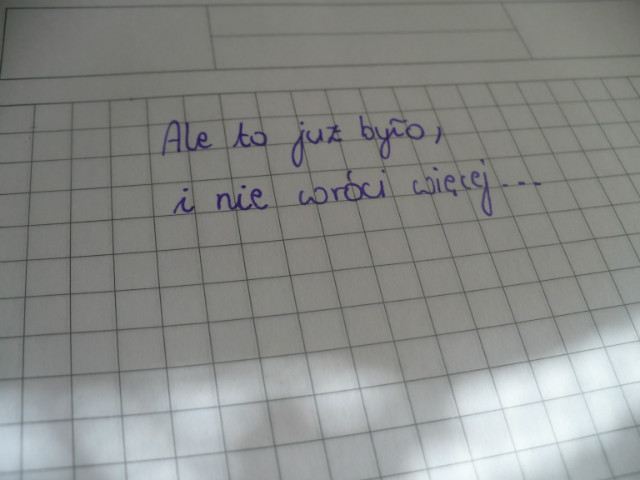 Ale to już było,
i nie wróci więcej...